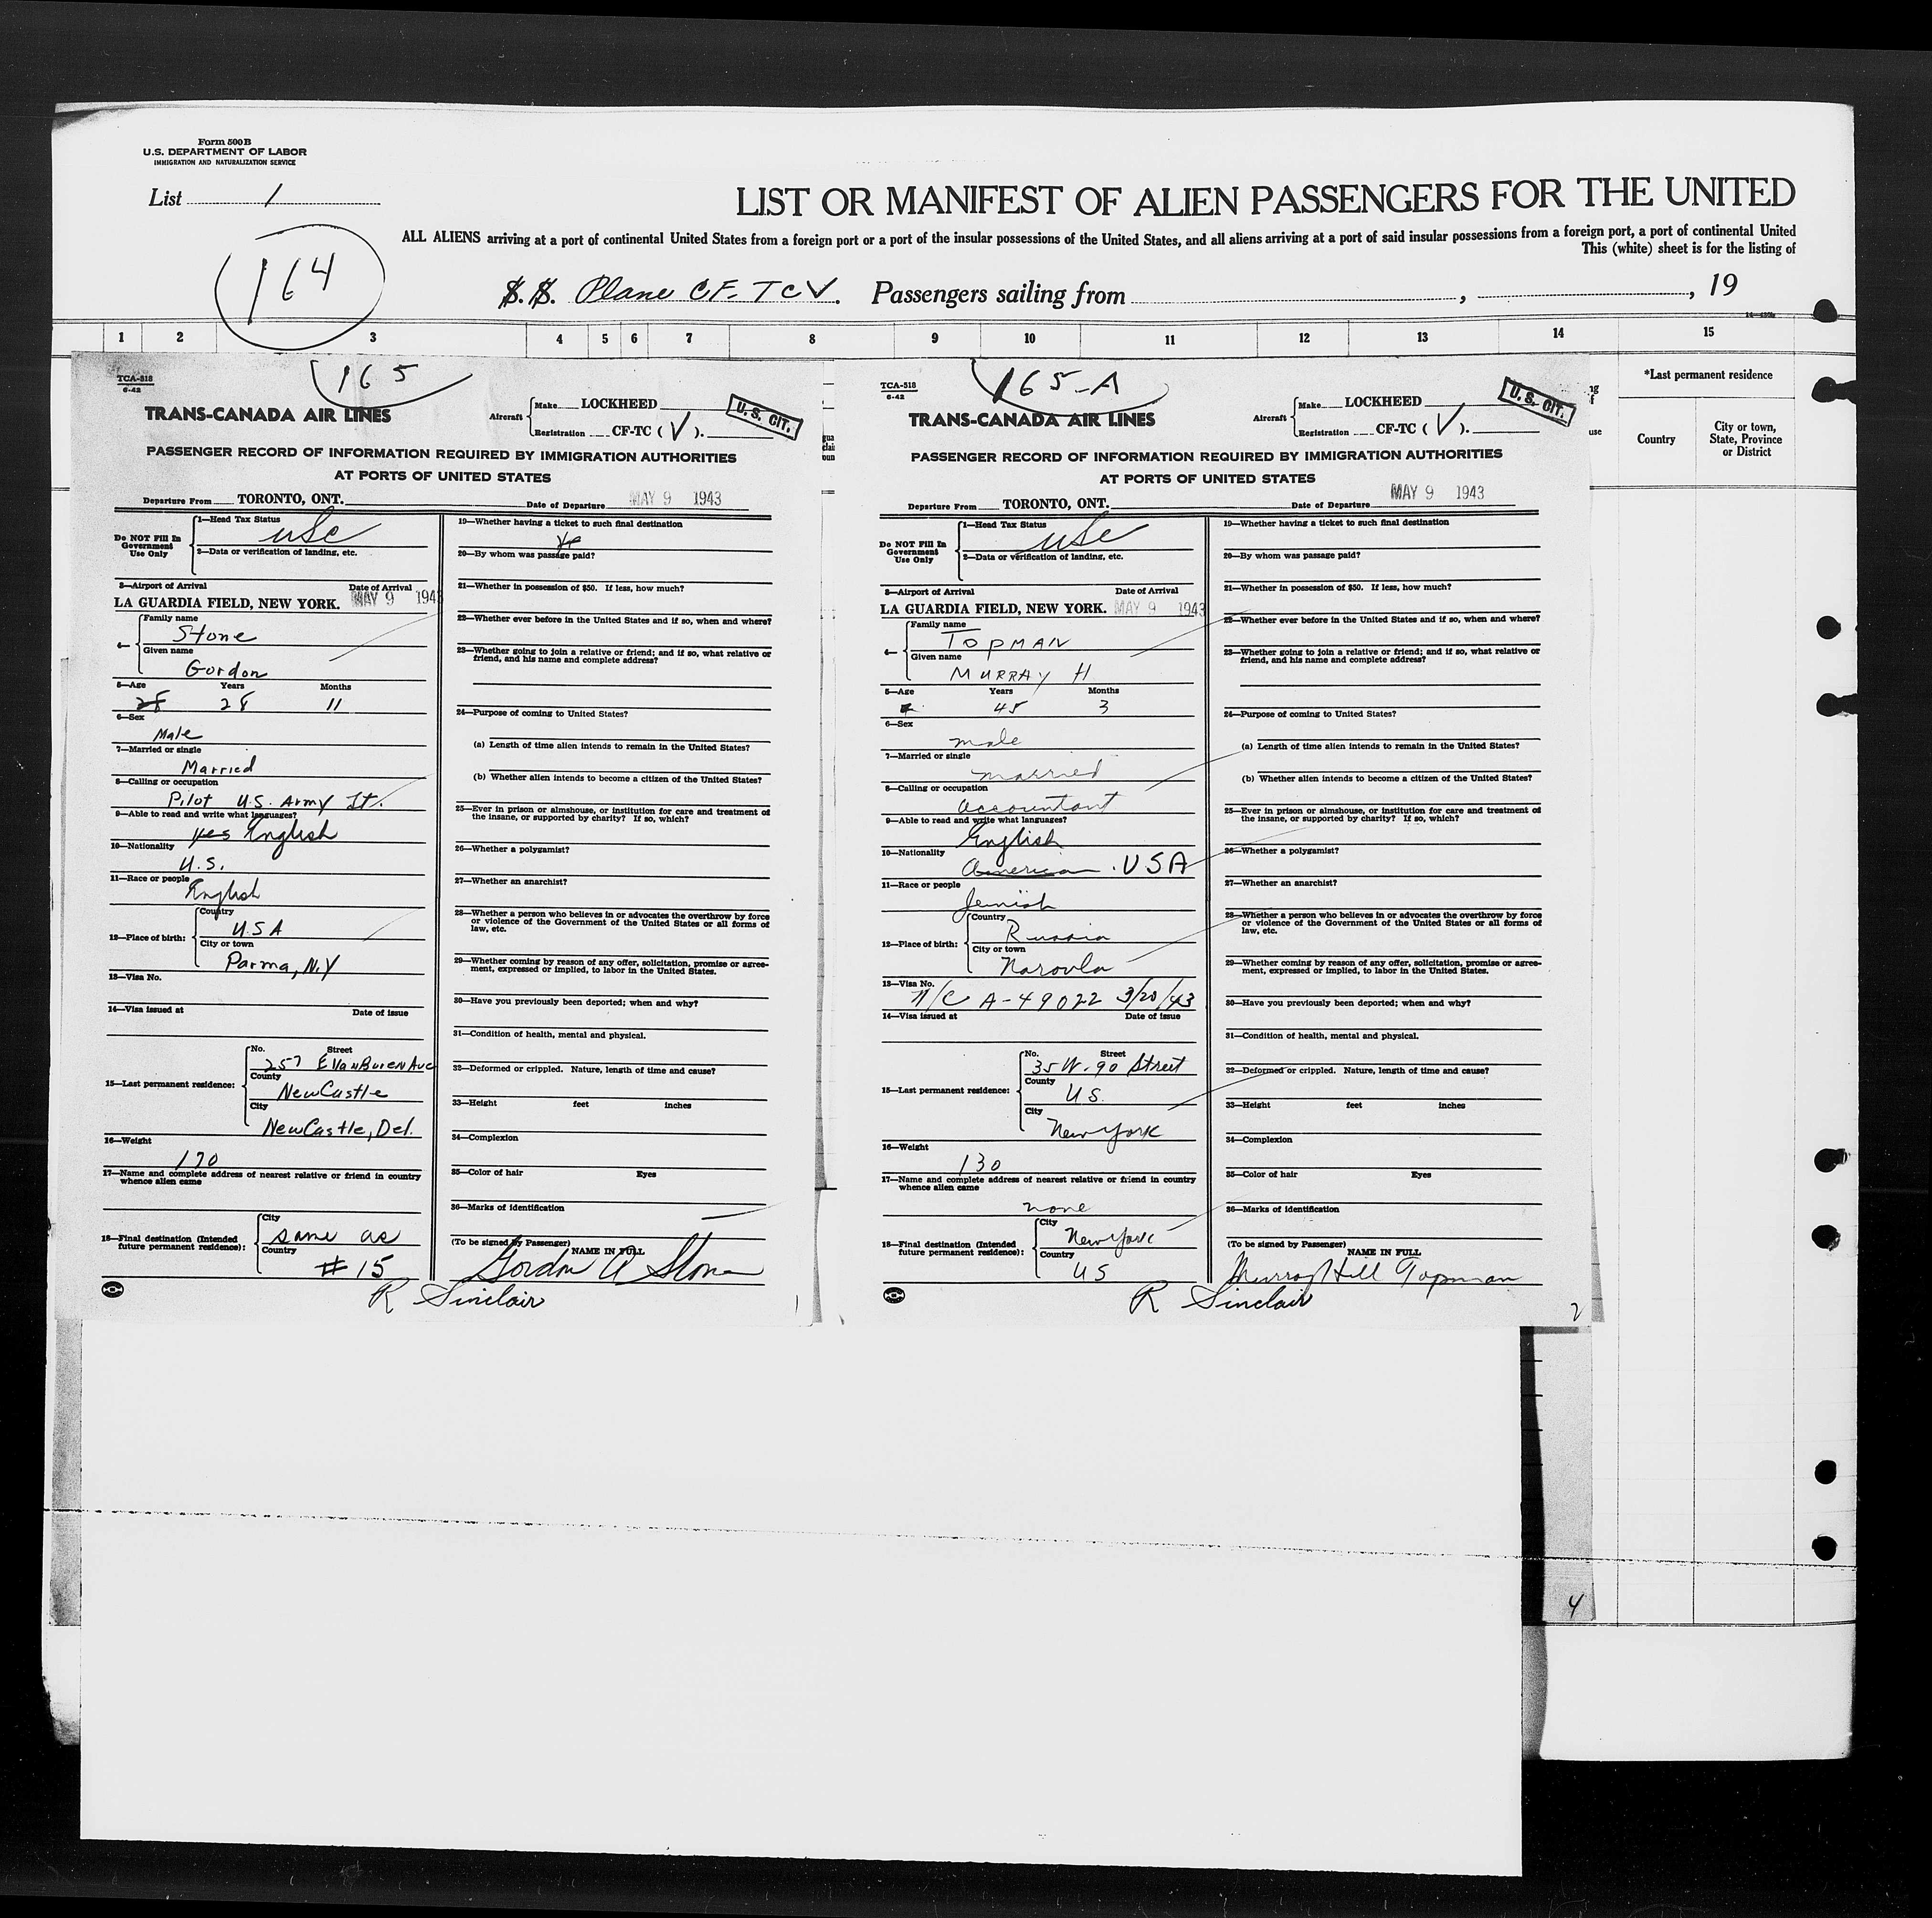 Form 500B
U.S. DEPARTMENT OF LABOR
IMMIGRATION AND NATURALIZATION SERVICE
List 1
LIST OR MANIFEST OF ALIEN PASSENGERS FOR THE UNITED
ALL ALIENS arriving at a port of continental United States from a foreign port or a port of the insular possessions of the United States, and all aliens arriving at a port of said insular possessions from a foreign port, a port of continental United
This (white) sheet is for the listing of
164
S.S. Plane CF-TCV. Passengers sailing from , , 19
1 2 3 4 5 6 7 8 9 10 11 12 13 14 15
*Last permanent residence
Country
City or town,
State, Province
or District
165
TCA-518
6-42
TRANS-CANADA AIR LINES
Aircraft
Make LOCKHEED
Registration CF-TC (V).
U.S. CIT.
PASSENGER RECORD OF INFORMATION REQUIRED BY IMMIGRATION AUTHORITIES
AT PORTS OF UNITED STATES
Departure From TORONTO, ONT. Date of Departure MAY 9 1943
Do NOT Fill In
Government
Use Only
1—Head Tax Status
USC
2—Data or verification of landing, etc.
3—Airport of Arrival Date of Arrival
LA GUARDIA FIELD, NEW YORK. MAY 9 1943
4—
Family name
Stone
Given name
Gordon
5—Age Years Months
28 28 11
6—Sex
Male
7—Married or single
Married
8—Calling or occupation
Pilot U.S. Army Lt.
9—Able to read and write what languages?
yes English
10—Nationality
U.S.
11—Race or people
English
12—Place of birth:
Country
USA
City or town
Parma, N.Y
13—Visa No.
14—Visa issued at Date of issue
15—Last permanent residence:
No. Street
257 E VanBuren Ave
County
NewCastle
City
NewCastle, Del.
16—Weight
170
17—Name and complete address of nearest relative or friend in country
whence alien came
18—Final destination (Intended
future permanent residence):
City
same as
Country
#15
19—Whether having a ticket to such final destination
20—By whom was passage paid?
21—Whether in possession of $50. If less, how much?
22—Whether ever before in the United States and if so, when and where?
23—Whether going to join a relative or friend; and if so, what relative or
friend, and his name and complete address?
24—Purpose of coming to United States?
(a) Length of time alien intends to remain in the United States?
(b) Whether alien intends to become a citizen of the United States?
25—Ever in prison or almshouse, or institution for care and treatment of
the insane, or supported by charity? If so, which?
26—Whether a polygamist?
27—Whether an anarchist?
28—Whether a person who believes in or advocates the overthrow by force
or violence of the Government of the United States or all forms of
law, etc.
29—Whether coming by reason of any offer, solicitation, promise or agree-
ment, expressed or implied, to labor in the United States.
30—Have you previously been deported; when and why?
31—Condition of health, mental and physical.
32—Deformed or crippled. Nature, length of time and cause?
33—Height feet inches
34—Complexion
35—Color of hair Eyes
36—Marks of identification
(To be signed by Passenger) NAME IN FULL
Gordon A Stone
R Sinclair
1
165-A
TCA-518
6-42
TRANS-CANADA AIR LINES
Aircraft
Make LOCKHEED
Registration CF-TC (V).
U.S. CIT.
PASSENGER RECORD OF INFORMATION REQUIRED BY IMMIGRATION AUTHORITIES
AT PORTS OF UNITED STATES
Departure From TORONTO, ONT. Date of Departure MAY 9 1943
Do NOT Fill In
Government
Use Only
1—Head Tax Status
USC
2—Data or verification of landing, etc.
3—Airport of Arrival Date of Arrival
LA GUARDIA FIELD, NEW YORK. MAY 9 1943
4—
Family name
TOPMAN
Given name
MURRAY H
5—Age Years Months
45 3
6—Sex
male
7—Married or single
married
8—Calling or occupation
accountant
9—Able to read and write what languages?
English
10—Nationality
American. USA
11—Race or people
Jewish
12—Place of birth:
Country
Russia
City or town
Narovla
13—Visa No.
N/C A-49022 3/20/43
14—Visa issued at Date of issue
15—Last permanent residence:
No. Street
35 W. 90 Street
County
U.S.
City
New York
16—Weight
130
17—Name and complete address of nearest relative or friend in country
whence alien came
none
18—Final destination (Intended
future permanent residence):
City
New York
Country
US
19—Whether having a ticket to such final destination
20—By whom was passage paid?
21—Whether in possession of $50. If less, how much?
22—Whether ever before in the United States and if so, when and where?
23—Whether going to join a relative or friend; and if so, what relative or
friend, and his name and complete address?
24—Purpose of coming to United States?
(a) Length of time alien intends to remain in the United States?
(b) Whether alien intends to become a citizen of the United States?
25—Ever in prison or almshouse, or institution for care and treatment of
the insane, or supported by charity? If so, which?
26—Whether a polygamist?
27—Whether an anarchist?
28—Whether a person who believes in or advocates the overthrow by force
or violence of the Government of the United States or all forms of
law, etc.
29—Whether coming by reason of any offer, solicitation, promise or agree-
ment, expressed or implied, to labor in the United States.
30—Have you previously been deported; when and why?
31—Condition of health, mental and physical.
32—Deformed or crippled. Nature, length of time and cause?
33—Height feet inches
34—Complexion
35—Color of hair Eyes
36—Marks of identification
(To be signed by Passenger) NAME IN FULL
Murray Hill Topman
R Sinclair
2
4